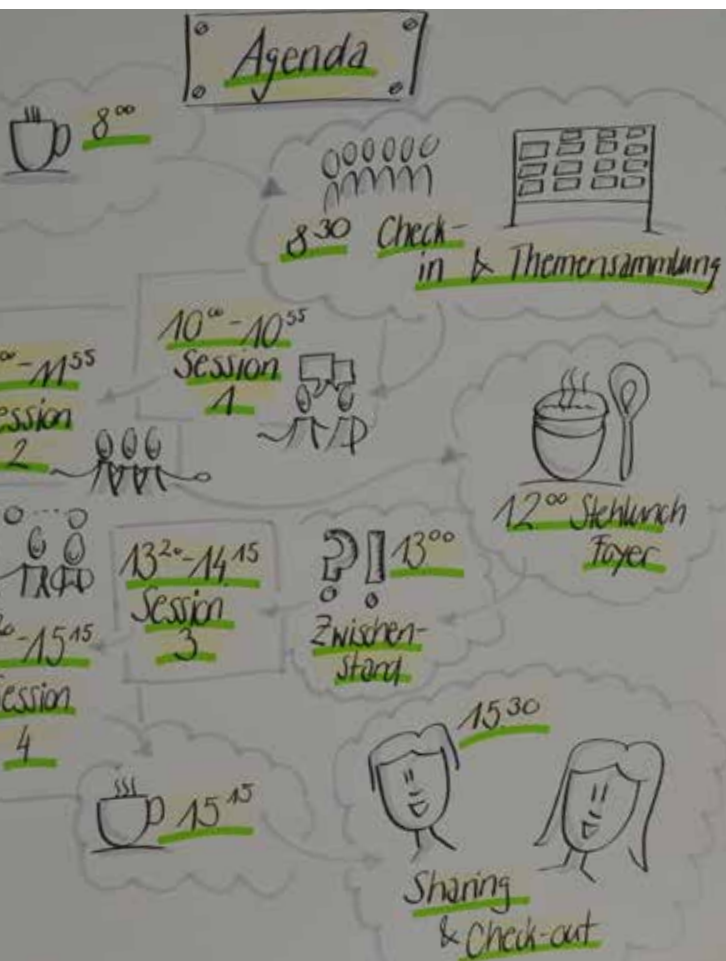 Agenda
8⁰⁰
8³⁰ Check-
in & Themensammlung
10⁰⁰-10⁵⁵
Session
1
-11⁵⁵
2
12⁰⁰ Stehlunch
Foyer
13⁰⁰
Zwischen-
stand
13²⁰-14¹⁵
Session
3
-15¹⁵
4
15¹⁵
15³⁰
Sharing
& Check-out